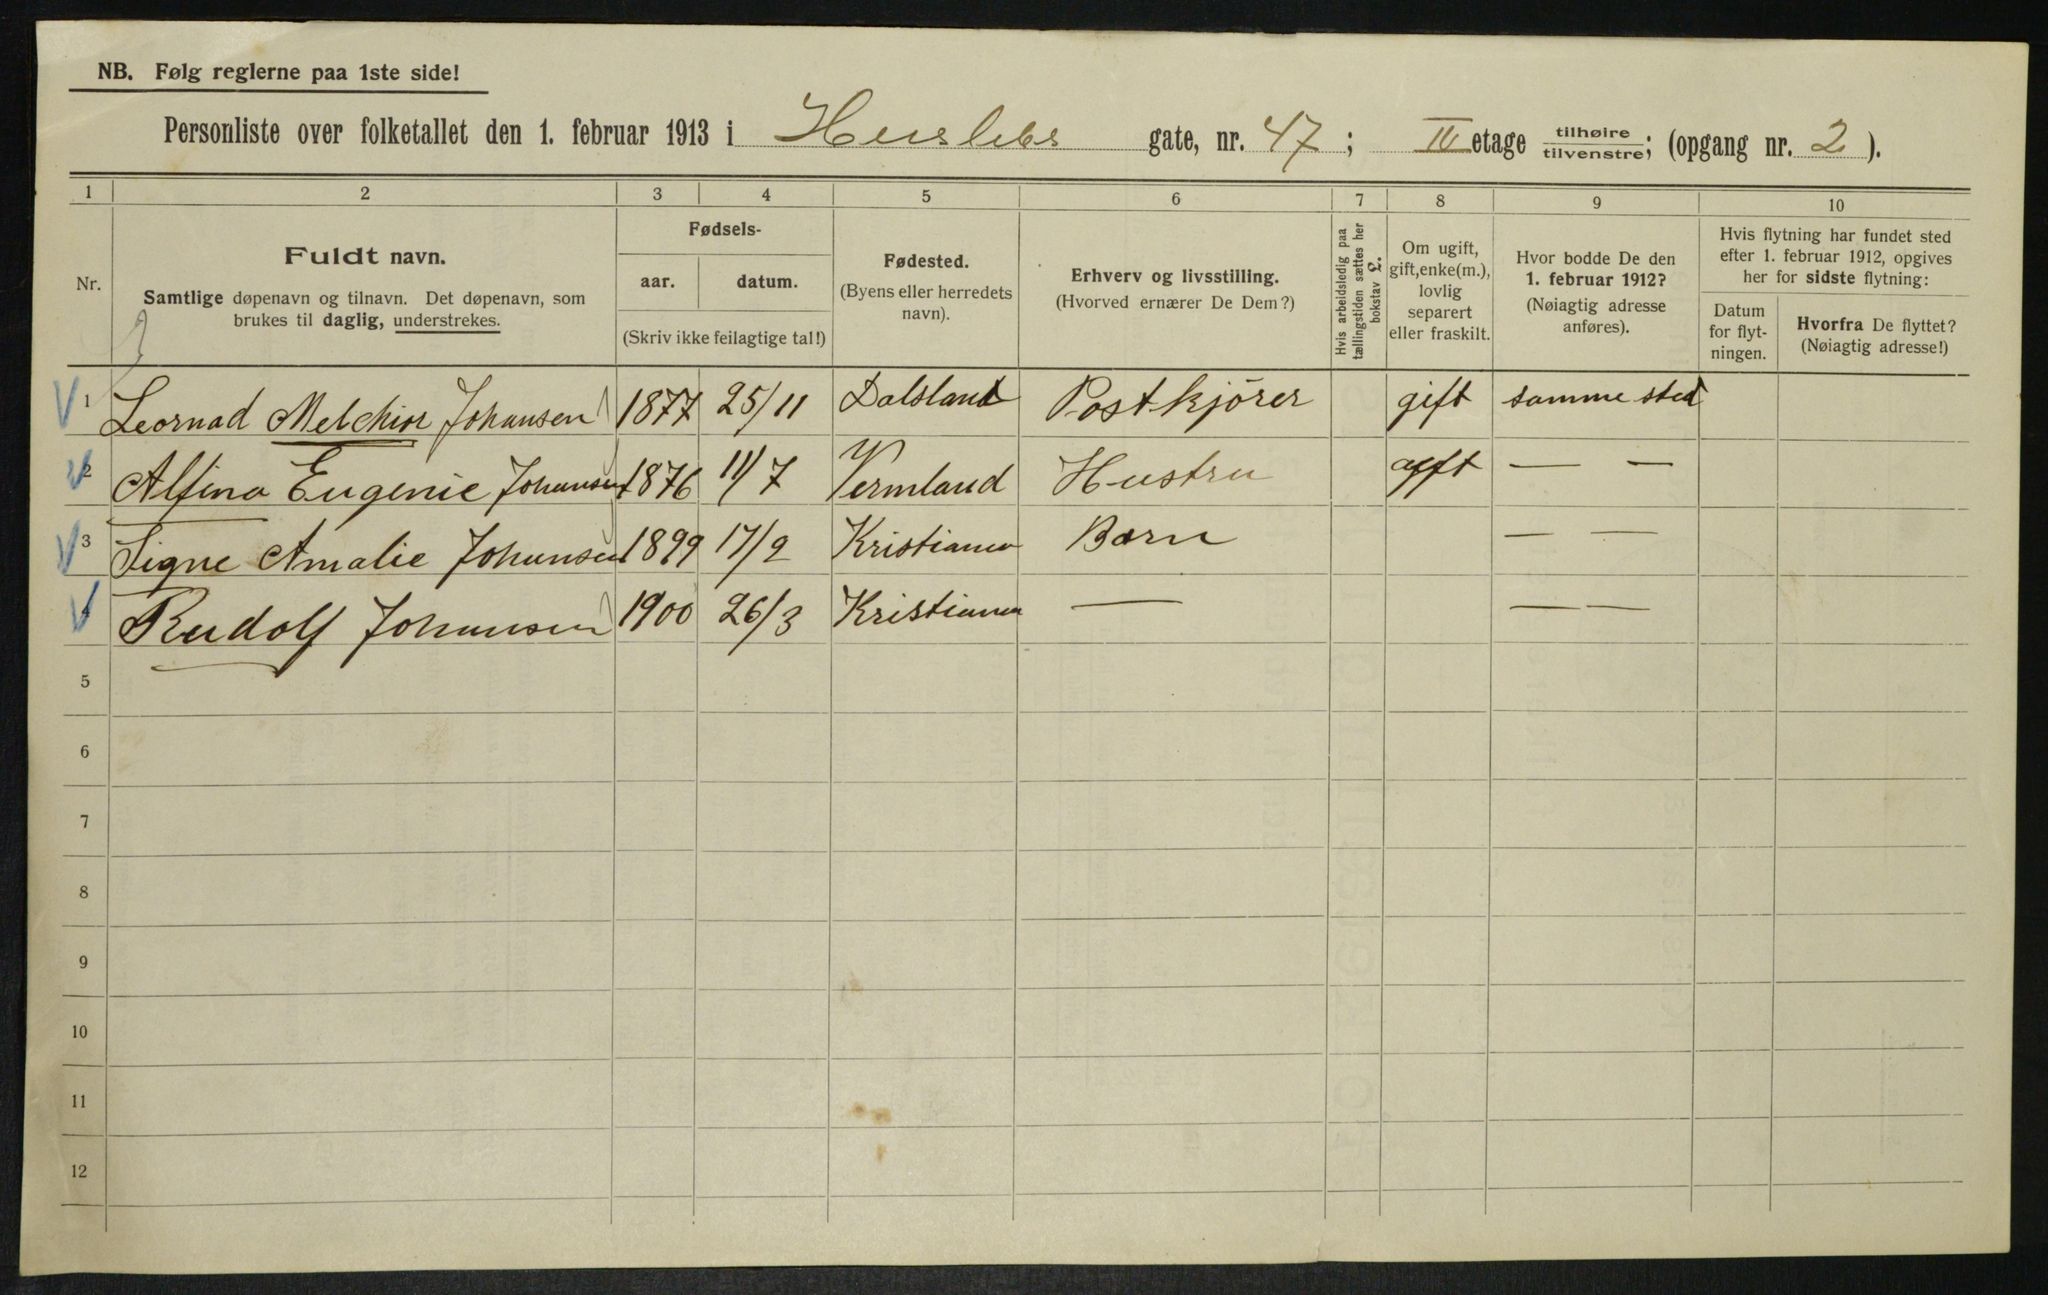 NB. Følg reglerne paa 1ste side!
Personliste over folketallet den 1. februar 1913 i Herslebs gate, nr. 47; IV etage tilhøire/tilvenstre; (opgang nr. 2).
1 2 3 4 5 6 7 8 9 10
Nr.
Fuldt navn.
Samtlige døpenavn og tilnavn. Det døpenavn, som
brukes til daglig, understrekes.
Fødsels-
aar. datum.
(Skriv ikke feilagtige tal!)
Fødested.
(Byens eller herredets
navn).
Erhverv og livsstilling.
(Hvorved ernærer De Dem?)
Hvis arbeidsledig paa
tællingstiden sættes her
bokstav L.
Om ugift,
gift, enke(m.),
lovlig
separert
eller fraskilt.
Hvor bodde De den
1. februar 1912?
(Nøiagtig adresse
anføres).
Hvis flytning har fundet sted
efter 1. februar 1912, opgives
her for sidste flytning:
Datum
for flyt-
ningen.
Hvorfra De flyttet?
(Nøiagtig adresse!)
1 Leornad Melchior Johansen 1877 25/11 Dalsland Postkjörer gift samme sted
2 Alfina Eugenie Johansen 1876 11/7 Vermland Hustru gift — —
3 Signe Amalie Johansen 1899 17/2 Kristiania Barn — —
4 Rudolf Johansen 1900 26/3 Kristiania — — —
5
6
7
8
9
10
11
12